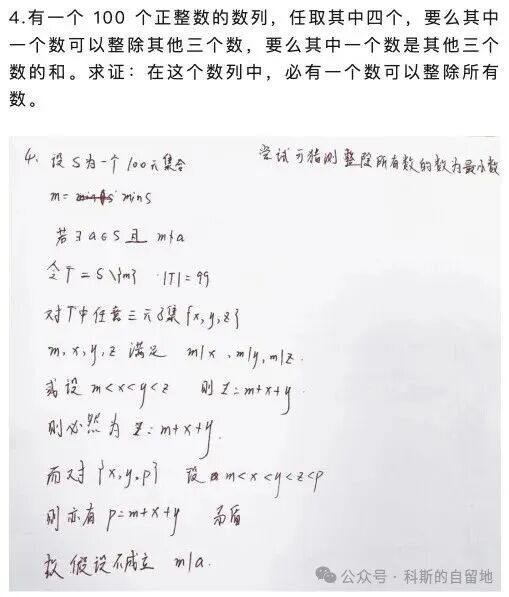 4.有一个 100 个正整数的数列，任取其中四个，要么其中
一个数可以整除其他三个数，要么其中一个数是其他三个
数的和。求证：在这个数列中，必有一个数可以整除所有
数。
4. 设 S 为一个 100元集合
尝试可猜测整除所有数的数为最小数
m = minS
若 ∃ a∈S 且 m∤a
令 T = S \ {m} |T| = 99
对 T 中任意三元子集 {x, y, z}
m, x, y, z 满足 m|x, m|y, m|z.
或设 m<x<y<z 则 z = m+x+y
则必然为 z = m+x+y.
而对 {x, y, p} 设 m<x<y<z<p
则亦有 p = m+x+y 矛盾
故假设不成立 m|a.
公众号·科斯的自留地